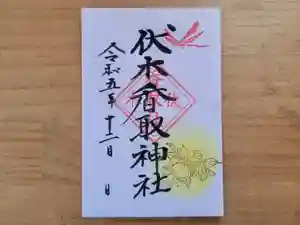 伏木香取神社
令和五年十二月 日